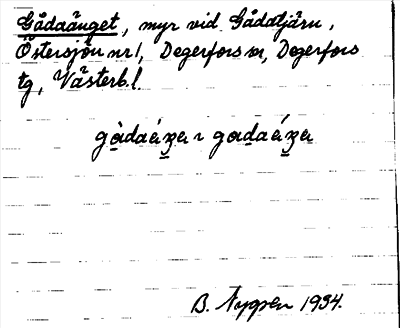 Gådaänget, myr vid Gådatjärn,
Östersjön nr 1, Degerfors sn, Degerfors
tg, Västerb. l.
B. Nygren 1934.